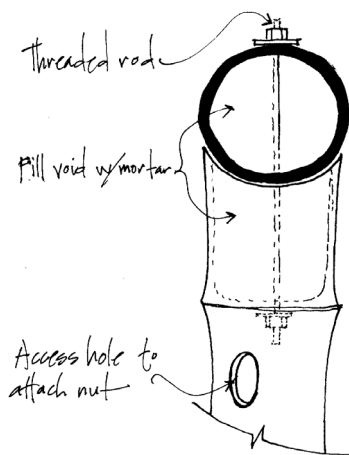 Threaded rod
Fill void w/mortar
Access hole to
attach nut